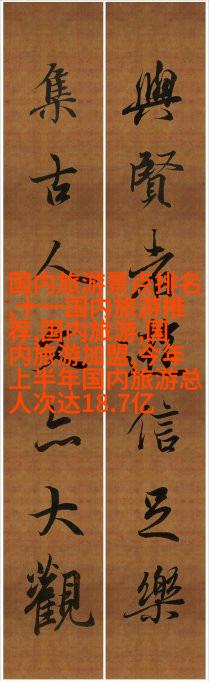 與賢者信足樂
集古人亦大觀
国内旅游景点排名
,十一国内旅游推
荐,国内旅游,国
内旅游加盟,今年
上半年国内旅游总
人次达18.7亿